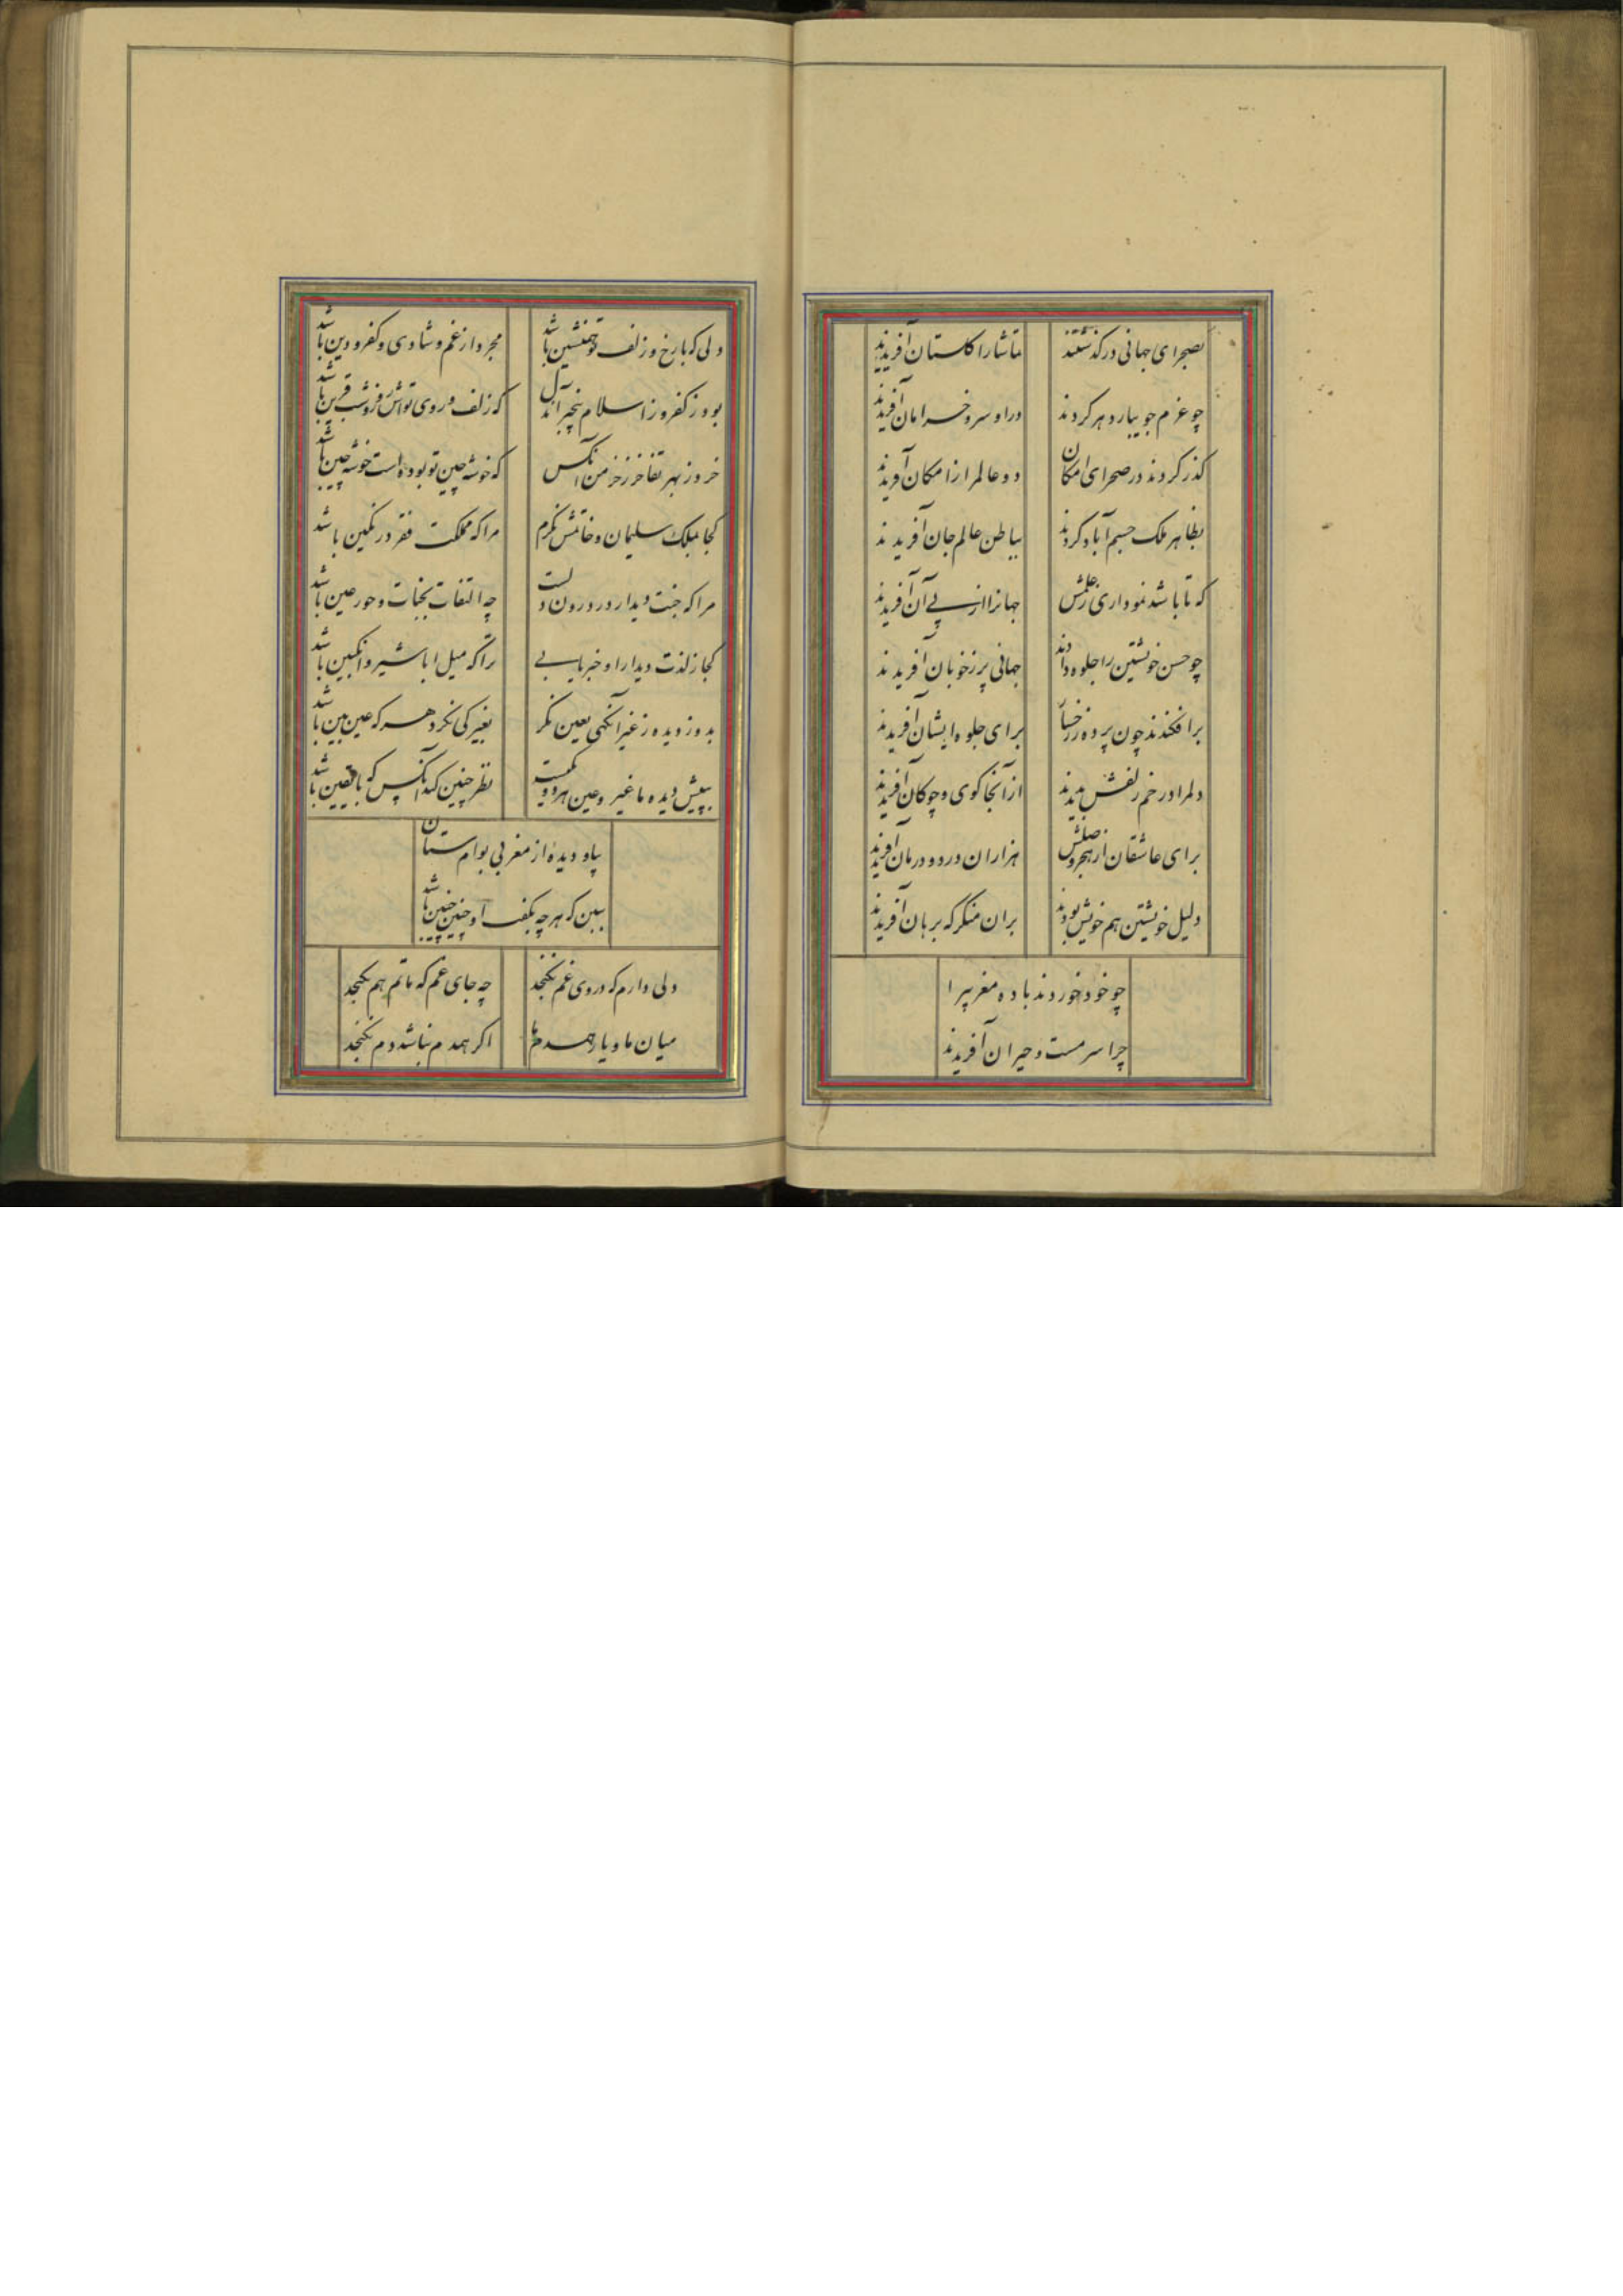 بصحرای جهانی درگذشتند تماشا را گلستان آفریدند
چو عزم جویبار دهر کردند در او سرو خرامان آفریدند
گذر کردند در صحرای امکان دو عالم را ز امکان آفریدند
بظاهر ملک جسم آباد کردند بباطن عالم جان آفریدند
که تا باشد نموداری ز علمش جهانرا از پی آن آفریدند
چو حسن خویشتن را جلوه دادند جهانی پر ز خوبان آفریدند
برافکندند چون پرده ز رخسار برای جلوه ایشان آفریدند
دلم را در خم زلفش بدیدند از آنجا گوی و چوگان آفریدند
برای عاشقان از هجر و وصلش هزاران درد و درمان آفریدند
دلیل خویشتن هم خویش بودند بران منگر که برهان آفریدند
چو خود خوردند باده مغربیرا
چرا سرمست و حیران آفریدند
دلی که با رخ و زلف تو همنشین باشد مجرد از غم و شادی و کفر و دین باشد
بود ز کفر و ز اسلام بیخبر آندل که زلف و روی تواش روز و شب قرین باشد
خرد ز بهر تفاخر ز خرمن آنکس که خوشه چین تو بوده است خوشه چین باشد
کجا بملک سلیمان و خاتمش نگرم مرا که مملکت فقر در نگین باشد
مرا که جنت دیدار در درون دلست چه التفات بجنات و حور عین باشد
کجا ز لذت دیدار او خبر یابی ترا که میل ابا شیر و انگبین باشد
بدوز دیده ز غیر آنگهی بعین نگر بغیر کی نگرد هر که عین بین باشد
بپیش دیده ما غیر و عین هر دو یکیست نظر چنین کند آنکس که با یقین باشد
بیا و دیده از مغربی بوام ستان
ببین که هر چه بگفت او چنین چنین باشد
دلی دارم که در وی غم نگنجد چه جای غم که ماتم هم نگنجد
میان ما و یار همدم ما اگر همدم نباشد دم نگنجد